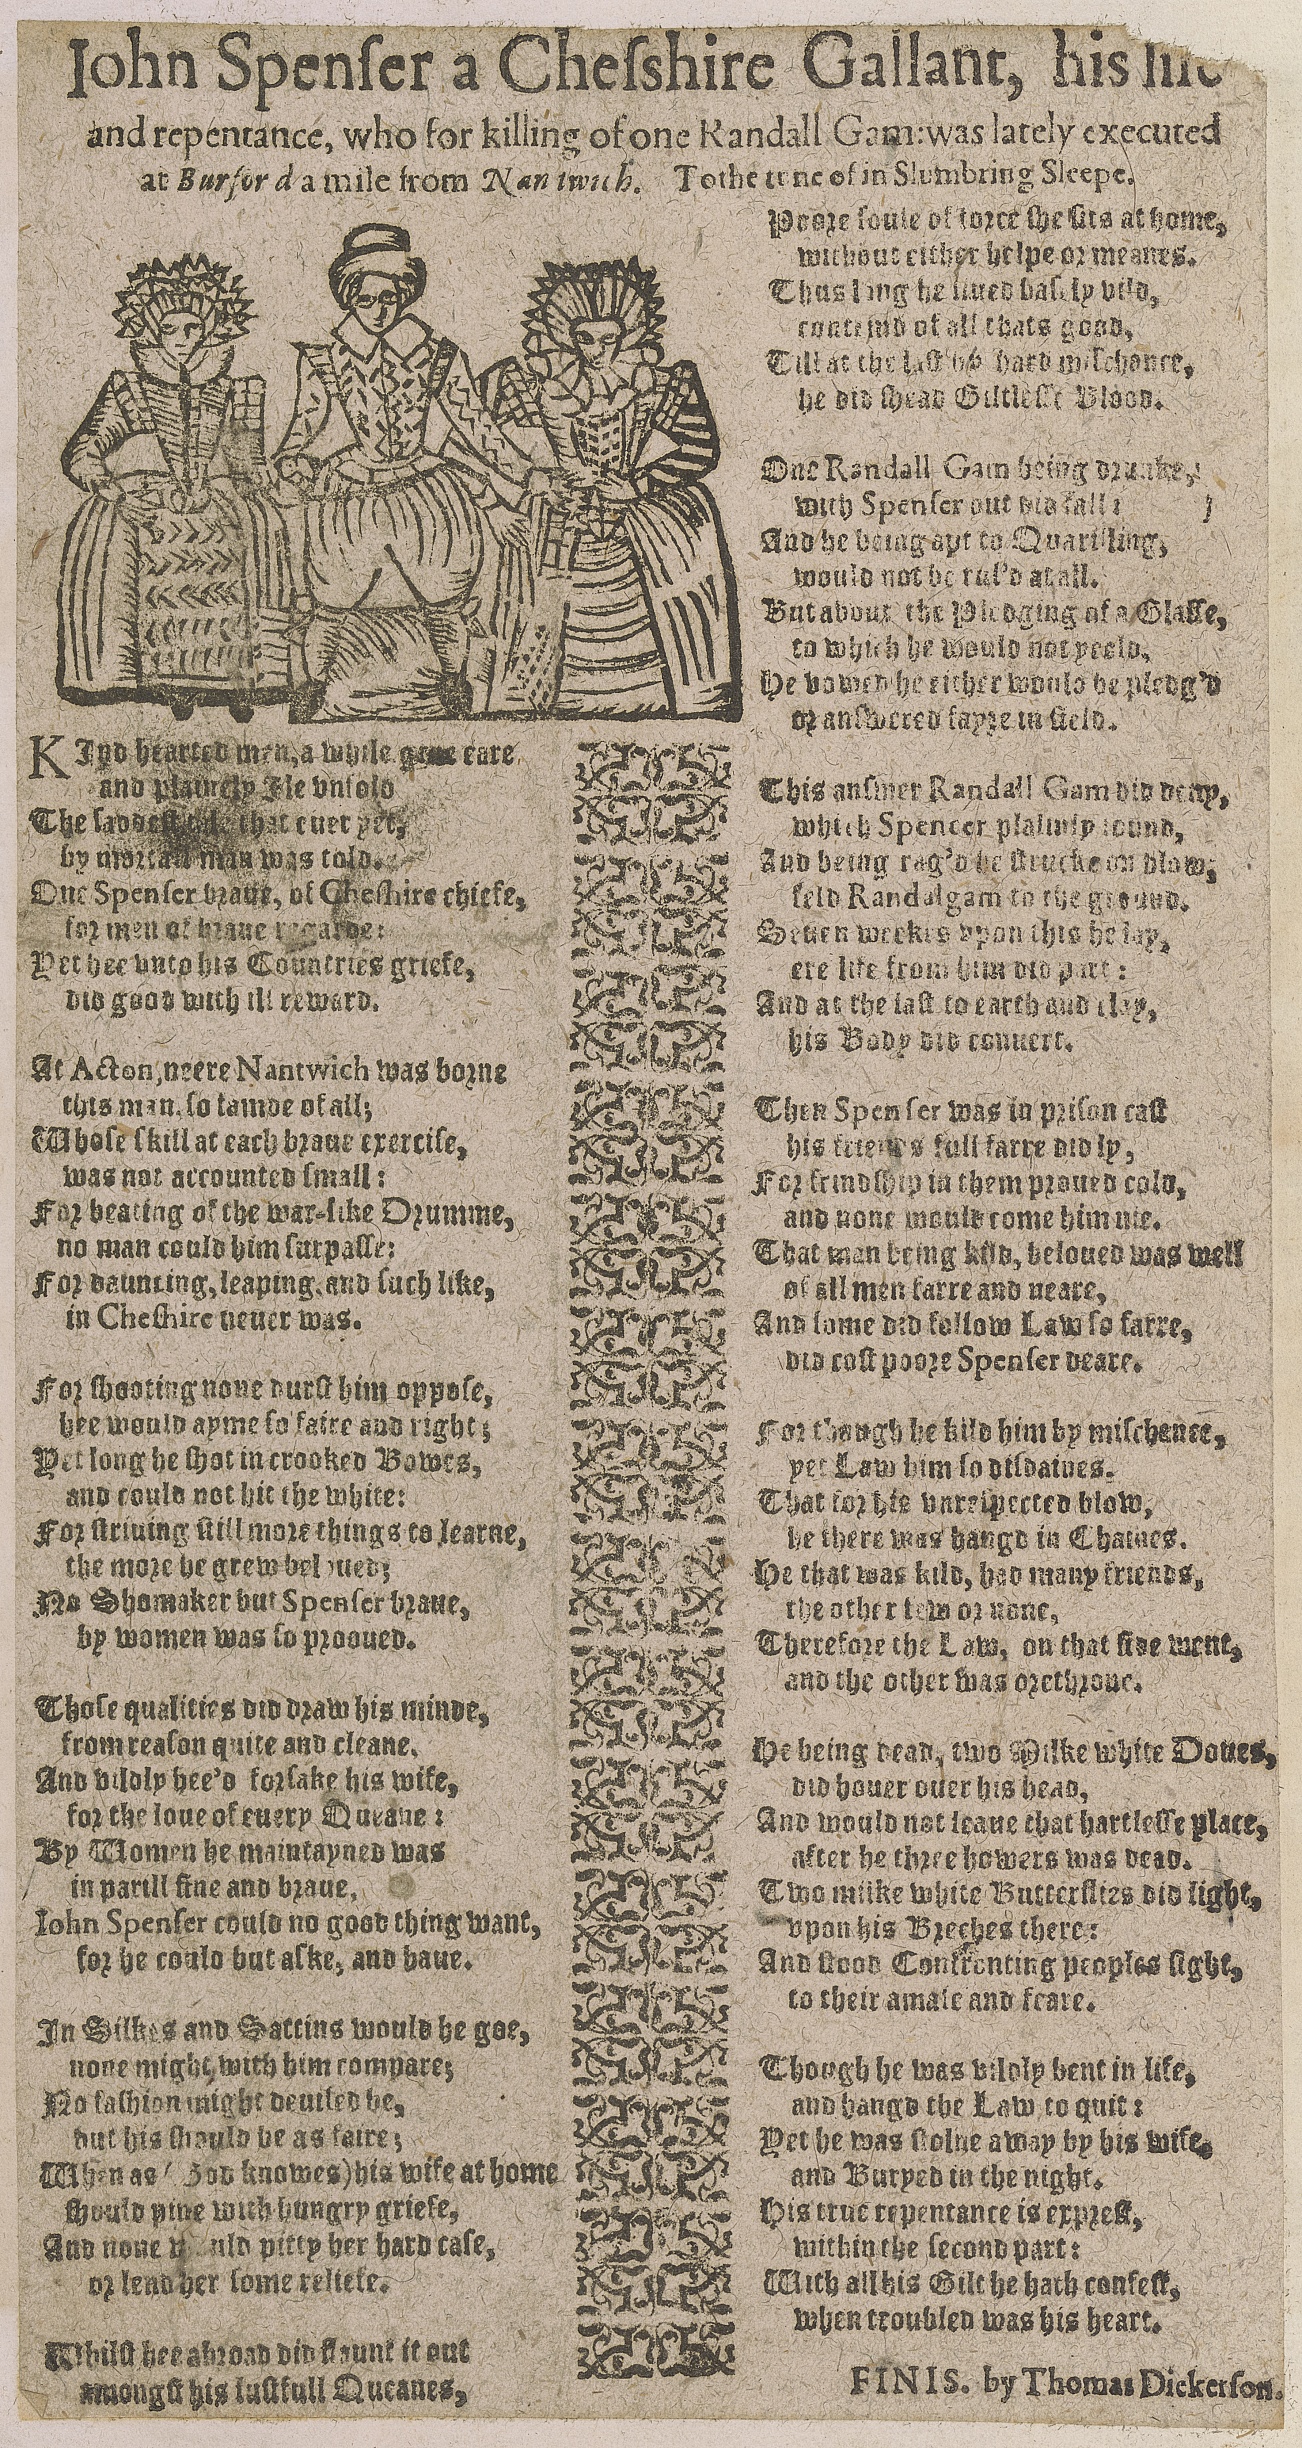 Iohn Spenſer a Cheſshire Gallant, his life
and repentance, who for killing of one Randall Gam: was lately executed
at Burford a mile from Nantwich. To the tune of in Slumbring Sleepe.
KInd hearted men, a while giue eare
and plainely Ile vnfold
The saddest tale that euer yet,
by mortall man was told.
One Spenſer braue, of Cheſhire chiefe,
for men of braue regarde:
Yet hee vnto his Countries griefe,
did good with ill reward.
At Acton, neere Nantwich was borne
this man, ſo famde of all;
Whoſe ſkill at each braue exerciſe,
was not accounted ſmall:
For beating of the war-like Drumme,
no man could him ſurpaſſe:
For daunting, leaping, and ſuch like,
in Cheſhire neuer was.
For ſhooting none durſt him oppoſe,
hee would ayme ſo faire and right;
Yet long he ſhot in crooked Bowes,
and could not hit the white:
For ſtriuing ſtill more things to learne,
the more he grew beloued;
No Shomaker but Spenſer braue,
by women was ſo prooued.
Thoſe qualities did draw his minde,
from reaſon quite and cleane,
And vildly hee'd forſake his wife,
for the loue of euery Queane:
By Women he maintayned was
in parill fine and braue,
Iohn Spenſer could no good thing want,
for he could but aſke, and haue.
In Silkes and Sattins would he goe,
none might, with him compare;
No faſhion might deuiſed be,
but his ſhould be as faire;
When as (God knowes) his wife at home
ſhould pine with hungry griefe,
And none would pitty her hard caſe,
or lend her ſome reliefe.
Whilſt hee abroad did flaunt it out
amongſt his luſtfull Queanes,
Poore ſoule of force ſhe ſits at home,
without either helpe or meanes.
Thus long he liued baſely vild,
contemd of all thats good,
Till at the laſt by hard miſchance,
he did ſhead Giltleſſe Blood.
One Randall Gam being drunke,
with Spenſer out did fall:
And he being apt to Quarilling,
would not be rul'd at all.
But about the Pledging of a Glaſſe,
to which he would not yeeld,
He vowed he either would be pledg'd
or anſwered fayre in field.
This anſwer Randall Gam did deny,
which Spencer plainly found,
And being rag'd he ſtrucke on blow,
feld Randalgam to the ground.
Seuen weekes vpon this he lay,
ere life from him did part:
And at the laſt to earth and clay,
his Body did conuert.
Then Spenſer was in priſon caſt
his friends full farre did ly,
For frindſhip in them proued cold,
and none would come him nie.
That man being kild, beloued was well
of all men farre and neare,
And ſome did follow Law ſo farre,
did coſt poore Spenſer deare.
For though he kild him by miſchance,
yet Law him ſo diſdaines,
That for his vnreſpected blow,
he there was hangd in Chaines.
He that was kild, had many friends,
the other few or none,
Therefore the Law, on that ſide went,
and the other was orethrone.
He being dead, two Milke white Doues,
did houer ouer his head,
And would not leaue that hartleſſe place,
after he three howers was dead.
Two milke white Butterflies did light,
vpon his Breches there:
And ſtood Confronting peoples ſight,
to their amaſe and feare.
Though he was vildly bent in life,
and hangd the Law to quit:
Yet he was ſtolne away by his wife,
and Buryed in the night.
His true repentance is expreſt,
within the ſecond part:
With all his Gilt he hath confeſt,
when troubled was his heart.
FINIS. by Thomas Dickerſon.